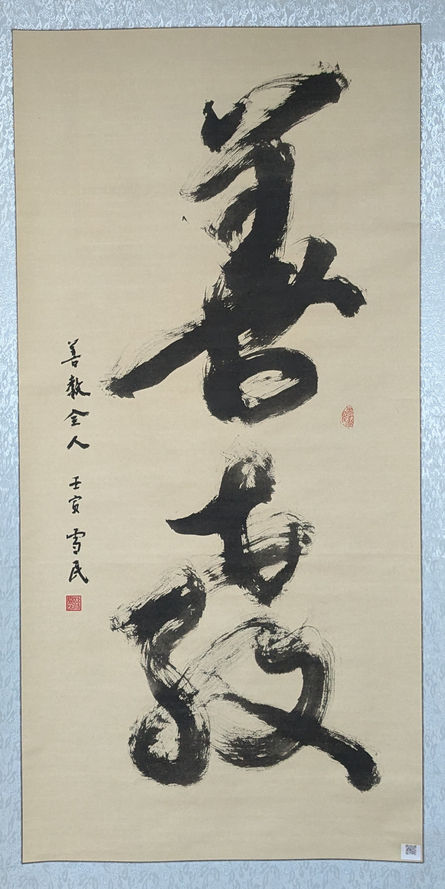 善教
善教全人 壬寅 雪民